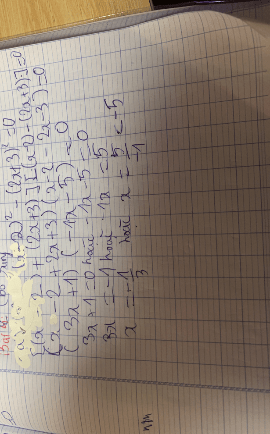 a) (x-2)² - (2x+3)² = 0
[(x-2)+(2x+3)][(x-2)-(2x+3)] = 0
(x-2+2x+3)(x-2-2x-3) = 0
(3x+1)(-1x-5) = 0
3x+1 = 0 hoặc -1x-5 = 0
3x = -1 hoặc -1x = 5
x = -1/3 hoặc x = 5/-1 = -5